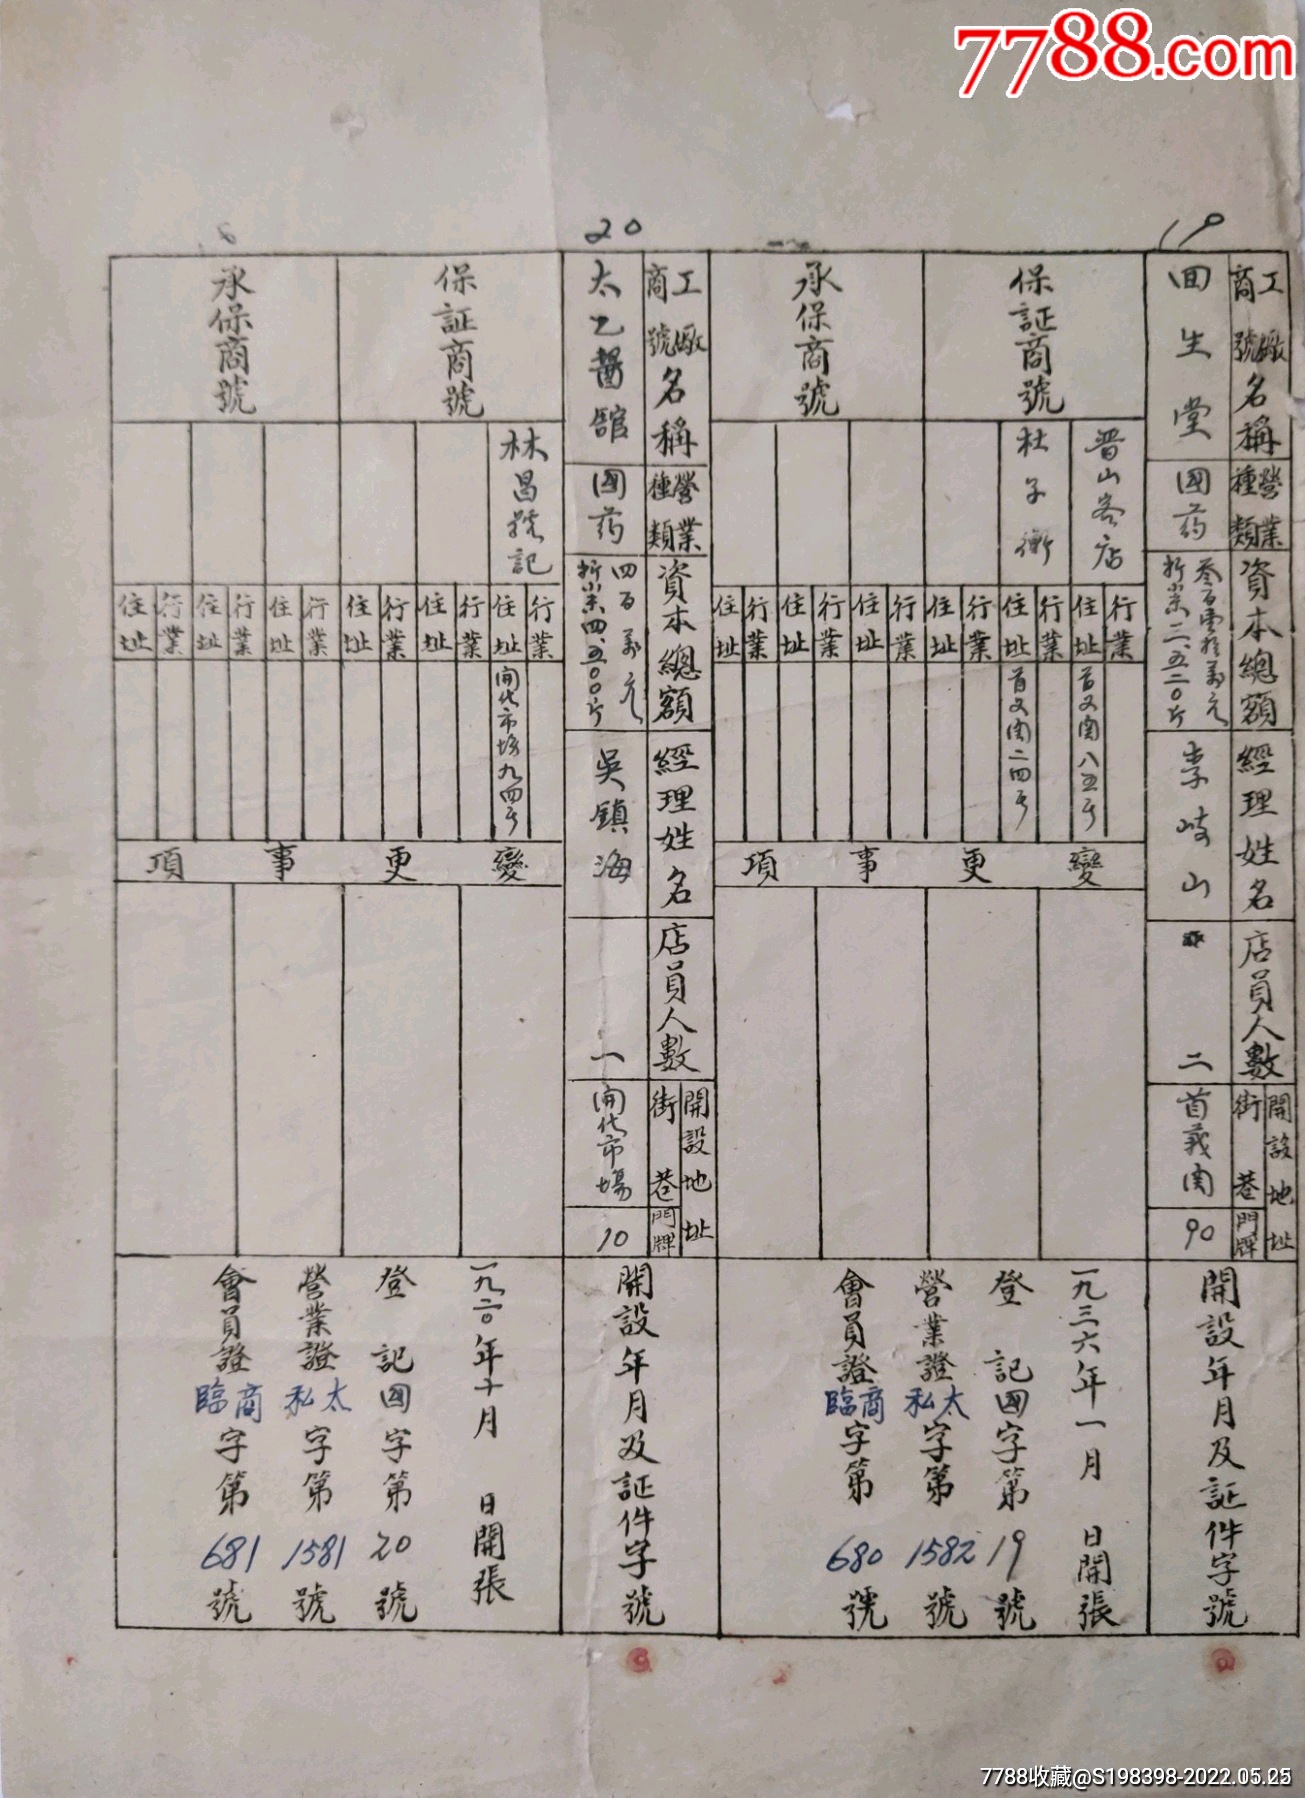 7788.com
19
工廠商號名稱
回生堂
營業種類
國药
資本總額
折小米二、五二〇斤
經理姓名
李岐山
店員人數
二
開設地址
街巷
首義南
門牌
90
開設年月及証件字號
一九三六年一月 日開張
登記国字第19號
營業證太私字第1582號
會員證商臨字第680號
保証商號
晋山客店
行業
住址
首义南八五号
杜子衡
行業
住址
首义南二四号
行業
住址
承保商號
行業
住址
行業
住址
行業
住址
變更事項
20
工廠商號名稱
太乙醫舘
營業種類
國药
資本總額
四百萬元
折小米四、五〇〇斤
經理姓名
吳鎮海
店員人數
一
開設地址
街巷
開化市場
門牌
10
開設年月及証件字號
一九二〇年十月 日開張
登記國字第20號
營業證太私字第1581號
會員證商臨字第681號
保証商號
林昌號記
行業
住址
開化市場九四号
行業
住址
行業
住址
承保商號
行業
住址
行業
住址
行業
住址
變更事項
7788收藏@S198398-2022.05.25